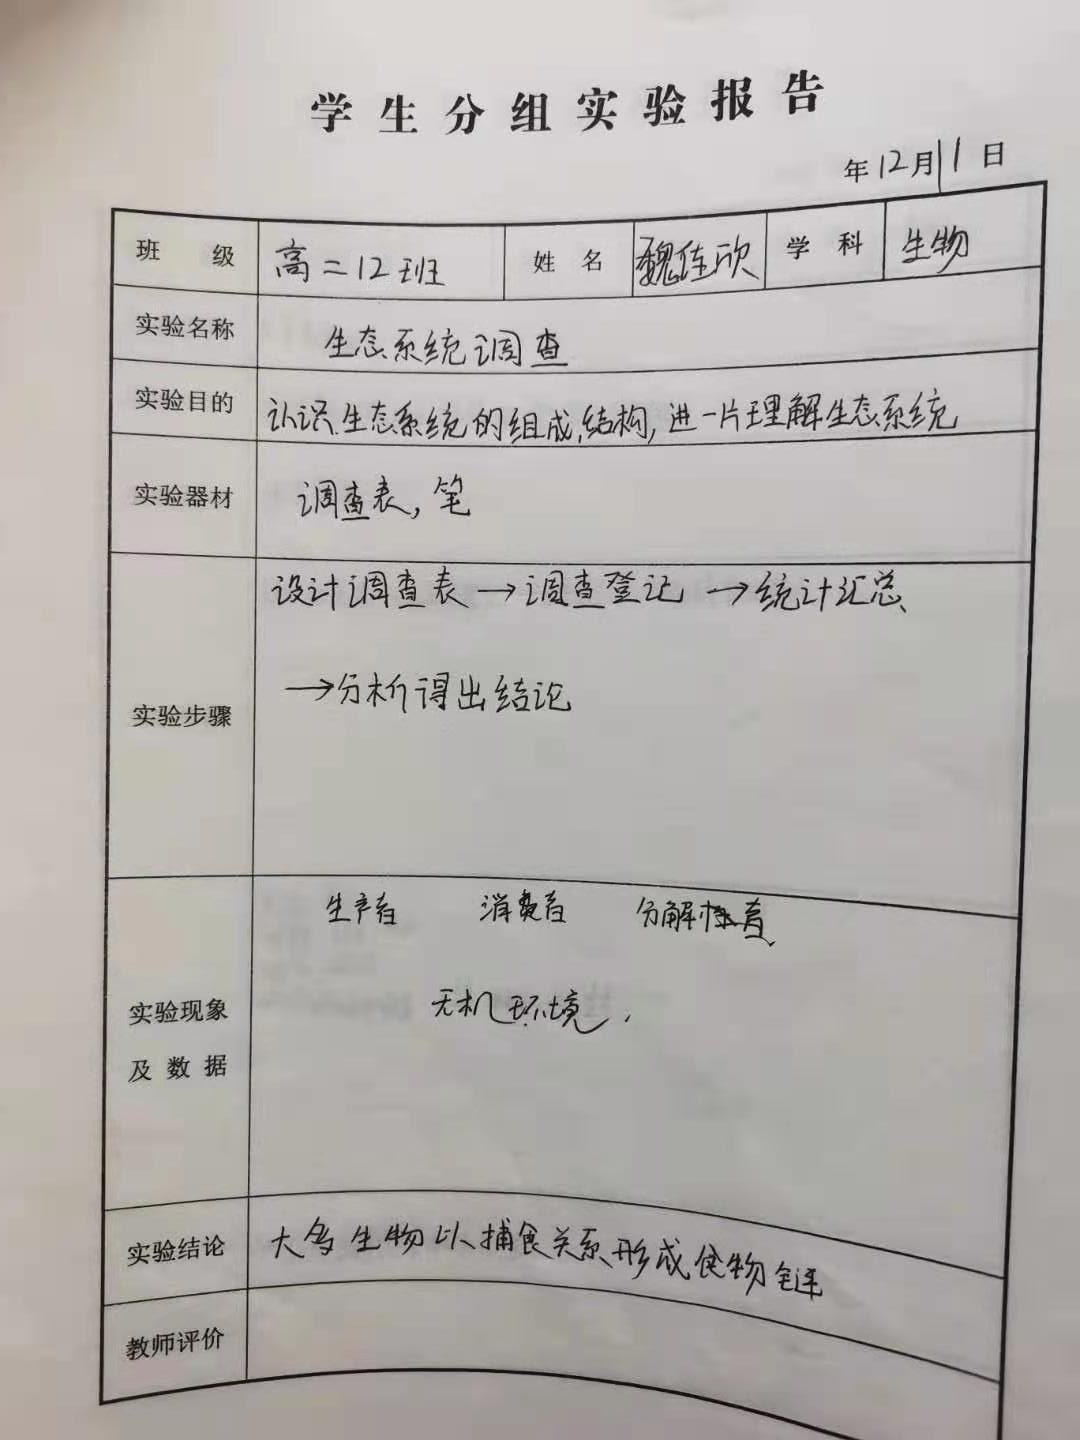 学生分组实验报告
年12月11日
班级 高二12班 姓名 魏佳欣 学科 生物
实验名称 生态系统调查
实验目的 认识生态系统的组成,结构,进一片理解生态系统
实验器材 调查表,笔
设计调查表→调查登记→统计汇总
→分析得出结论
实验步骤
生产者 消费者 分解者
无机环境.
实验现象
及数据
实验结论 大多生物以捕食关系形成食物链
教师评价